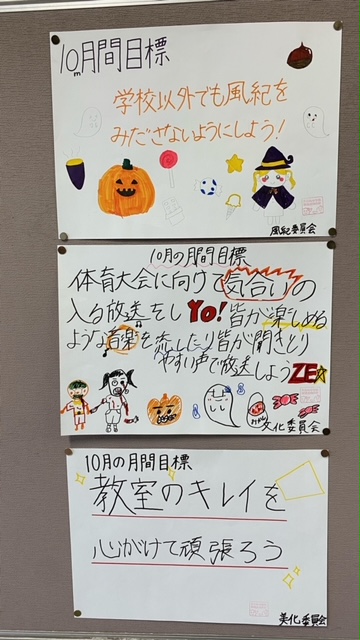 10月間目標
学校以外でも風紀を
みださないようにしよう！
風紀委員会
10月の月間目標
体育大会に向けて気合いの
入る放送をしYo!皆が楽しめる
ような音楽を流したり皆が聞きとり
やすい声で放送しようZE☆
文化委員会
10月の月間目標
教室のキレイを
心がけて頑張ろう
美化委員会